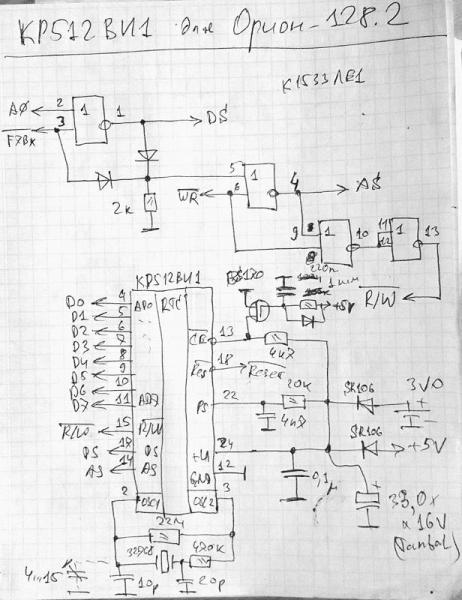 КР512ВИ1 для Орион-128.2
К1533ЛЕ1
A0 2 1 1 DS
F7Bx 3
5 1 4 AS
WR 6
2к
9 1 10 11 1 13
8 12
R/W
220п
+5V
КР512ВИ1
D0 4 AD0 RTC
D1 5
D2 6
D3 7
D4 8
D5 9
D6 10
D7 11 AD7
13
4н7
Res 18 Reset
PS 22 20к
4н7
R/W 15 R/W
DS 17 DS
AS 14 AS
+U 24
GND 12
SR106 3V0
SR106 +5V
0,1µ
33,0x
x 16V
(Tantal)
2 OSC1 OSC2 3
22M
32768 470к
4...15
10p 20p